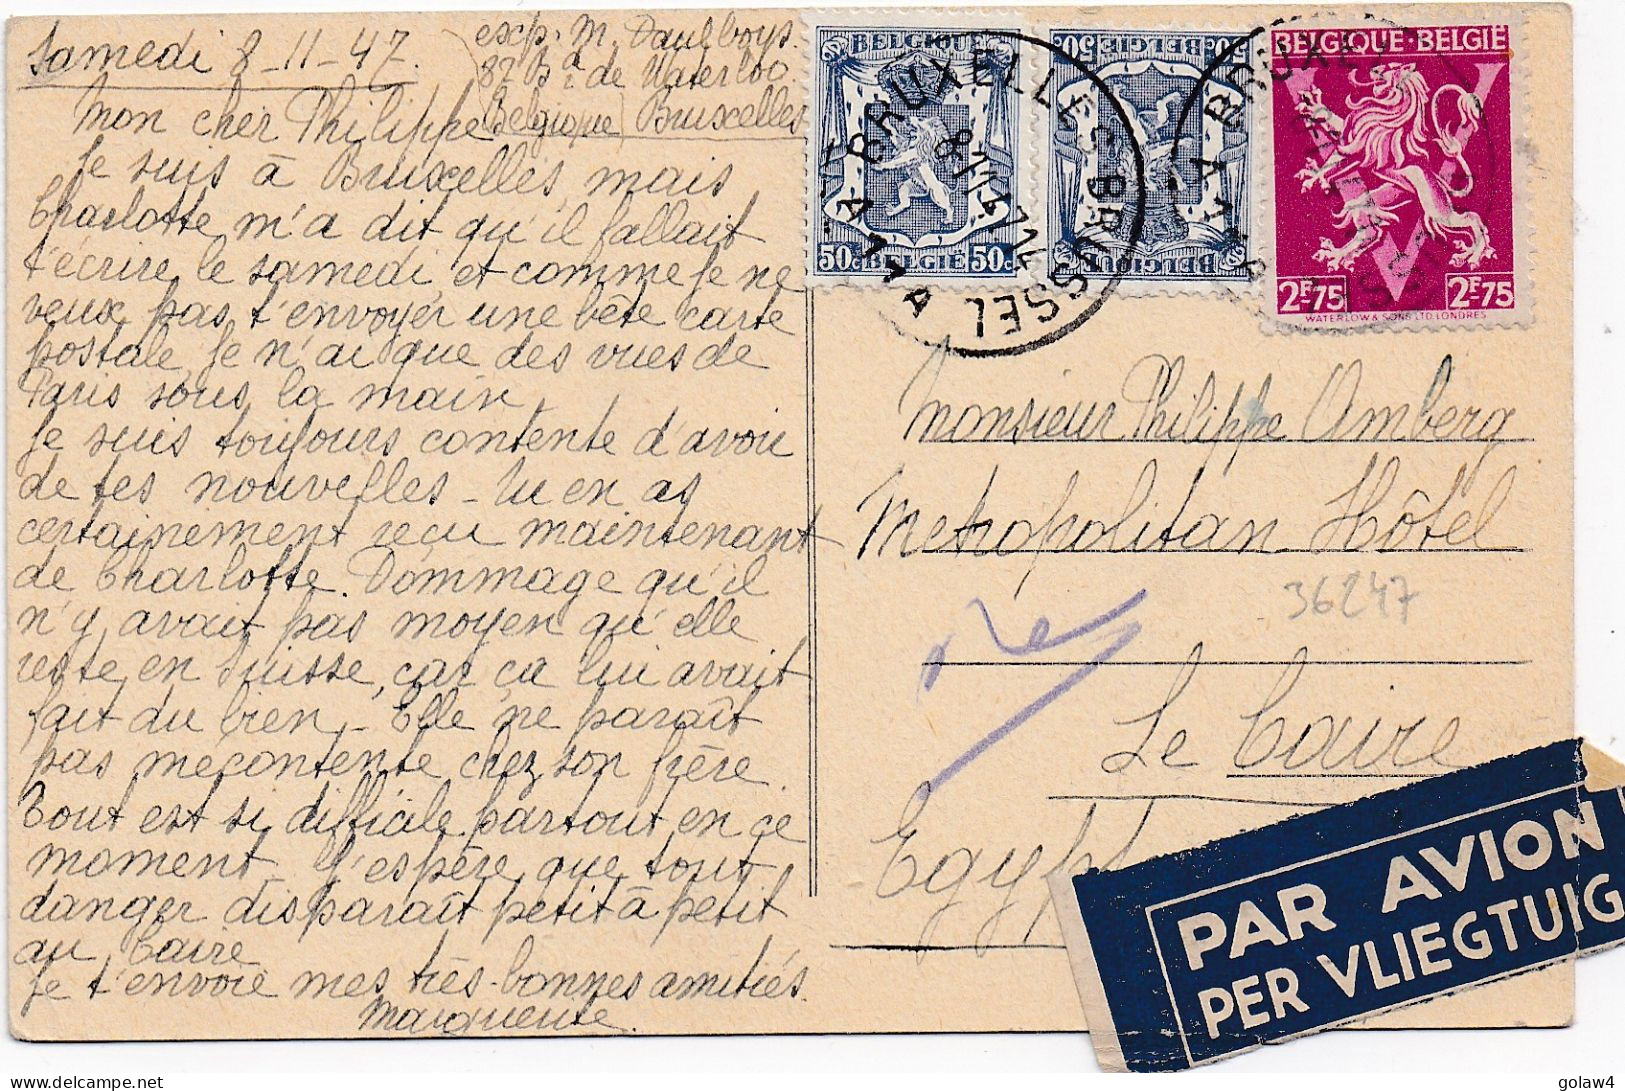 Samedi 8-11-47.
exp. M. Paul boys.
87 Bd de Waterloo
Belgique Bruxelles
Mon cher Philippe
Je suis à Bruxelles, mais
Charlotte m'a dit qu'il fallait
t'écrire le samedi, et comme je ne
veux pas t'envoyer une bête carte
postale, je n'ai que des vues de
Paris sous la main.
Je suis toujours contente d'avoir
de tes nouvelles - Tu en as
certainement reçu maintenant
de Charlotte. Dommage qu'il
n'y avait pas moyen qu'elle
reste en Suisse, car ça lui avait
fait du bien - Elle ne paraît
pas mécontente chez son frère
Tout est si difficile partout en ce
moment - J'espère que tout
danger disparaît petit à petit
au Caire
Je t'envoie mes très bonnes amitiés.
Marguerite.
BELGIQUE
50c BELGIË 50c
50c BELGIË 50c
BELGIQUE
BELGIQUE·BELGIË
2F75 2F75
WATERLOW & SONS LTD. LONDRES
BRUXELLES BRUSSEL
8 11 47
BRUXELLES BRUSSEL
Monsieur Philippe Amberg
Metropolitan Hôtel
36247
Le Caire
Egypt
PAR AVION
PER VLIEGTUIG
golaw4